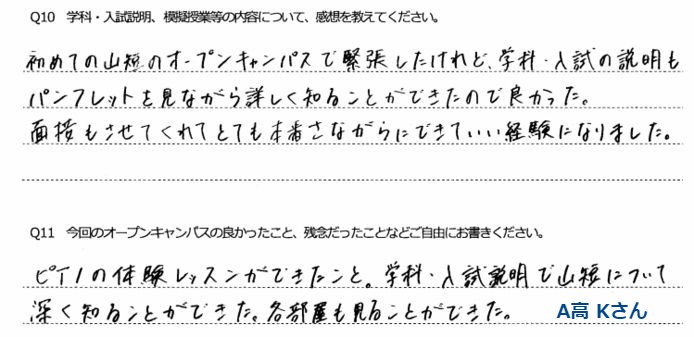 Q10 学科・入試説明、模擬授業等の内容について、感想を教えてください。
初めての山短のオープンキャンパスで緊張したけれど、学科・入試の説明も
パンフレットを見ながら詳しく知ることができたので良かった。
面接もさせてくれてとても本番さながらにできていい経験になりました。
Q11 今回のオープンキャンパスの良かったこと、残念だったことなどご自由にお書きください。
ピアノの体験レッスンができたこと。学科・入試説明で山短について
深く知ることができた。各部屋も見ることができた。 A高 Kさん